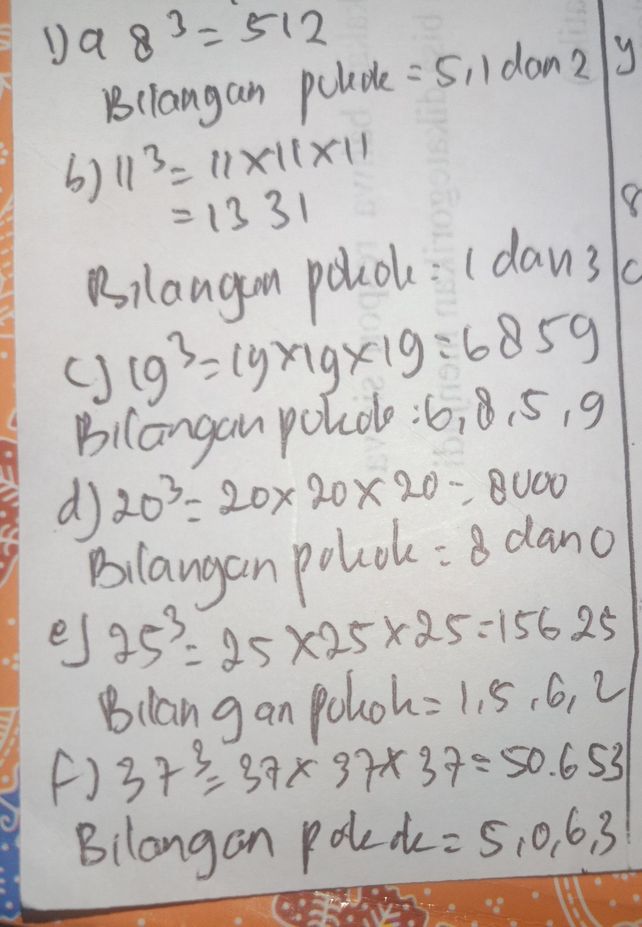 1) a 8³ = 512
Bilangan pokok = 5,1 dan 2
b) 11³ = 11×11×11
= 1331
Bilangan pokok : 1 dan 3
c) 19³ = 19×19×19 = 6859
Bilangan pokok : 6,8,5,9
d) 20³ = 20×20×20 = 8000
Bilangan pokok = 8 dan 0
e) 25³ = 25×25×25 = 15625
Bilangan pokok = 1,5,6,2
f) 37³ = 37×37×37 = 50.653
Bilangan pokok = 5,0,6,3